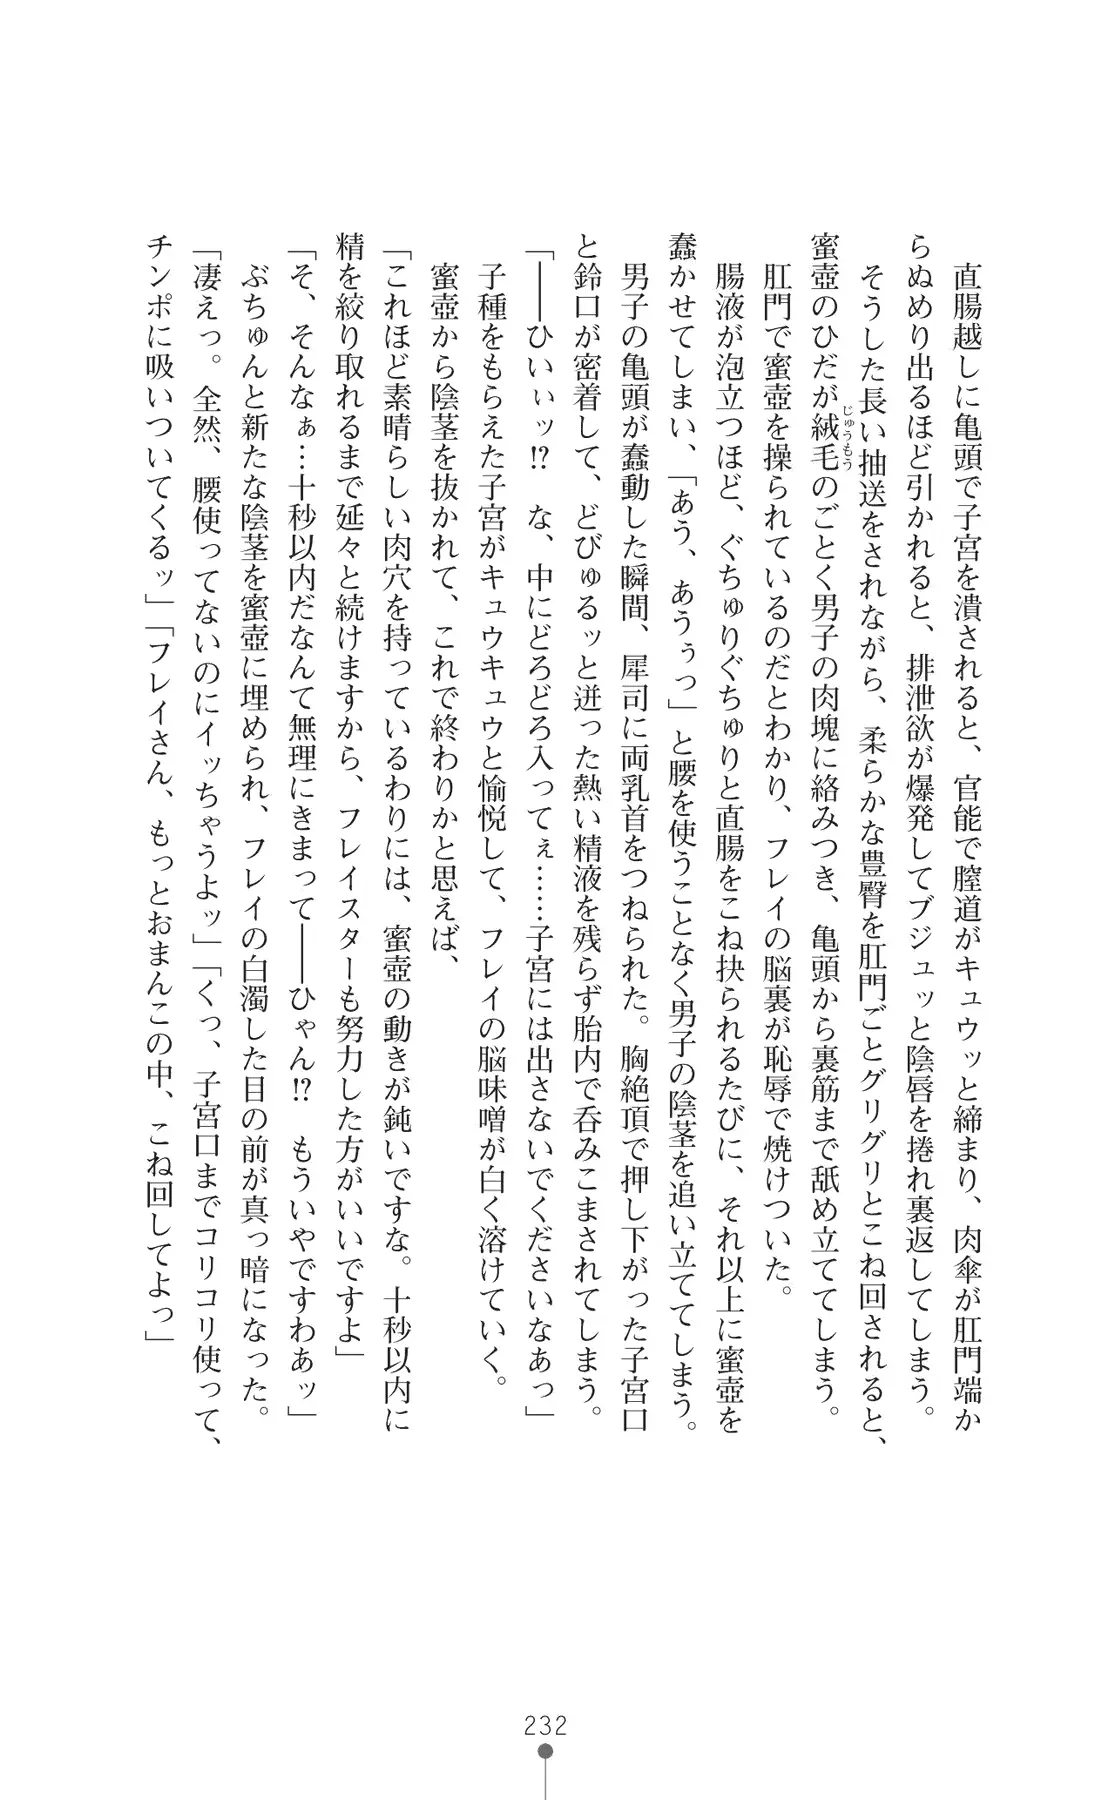 直腸越しに亀頭で子宮を潰されると、官能で膣道がキュウッと締まり、肉傘が肛門端か
らぬめり出るほど引かれると、排泄欲が爆発してブジュッと陰唇を捲れ裏返してしまう。
そうした長い抽送をされながら、柔らかな豊臀を肛門ごとグリグリとこね回されると、
蜜壺のひだが絨毛のごとく男子の肉塊に絡みつき、亀頭から裏筋まで舐め立ててしまう。
じゅうもう
肛門で蜜壺を操られているのだとわかり、フレイの脳裏が恥辱で焼けついた。
腸液が泡立つほど、ぐちゅりぐちゅりと直腸をこね抉られるたびに、それ以上に蜜壺を
蠢かせてしまい、「あう、あうぅっ」と腰を使うことなく男子の陰茎を追い立ててしまう。
男子の亀頭が蠢動した瞬間、犀司に両乳首をつねられた。胸絶頂で押し下がった子宮口
と鈴口が密着して、どびゅるッと迸った熱い精液を残らず胎内で呑みこまされてしまう。
「――ひいぃッ!?　な、中にどろどろ入ってぇ……子宮には出さないでくださいなあっ」
子種をもらえた子宮がキュウキュウと愉悦して、フレイの脳味噌が白く溶けていく。
蜜壺から陰茎を抜かれて、これで終わりかと思えば、
「これほど素晴らしい肉穴を持っているわりには、蜜壺の動きが鈍いですな。十秒以内に
精を絞り取れるまで延々と続けますから、フレイスターも努力した方がいいですよ」
「そ、そんなぁ…十秒以内だなんて無理にきまって――ひゃん!?　もういやですわあッ」
ぶちゅんと新たな陰茎を蜜壺に埋められ、フレイの白濁した目の前が真っ暗になった。
「凄えっ。全然、腰使ってないのにイッちゃうよッ」「くっ、子宮口までコリコリ使って、
チンポに吸いついてくるッ」「フレイさん、もっとおまんこの中、こね回してよっ」
232